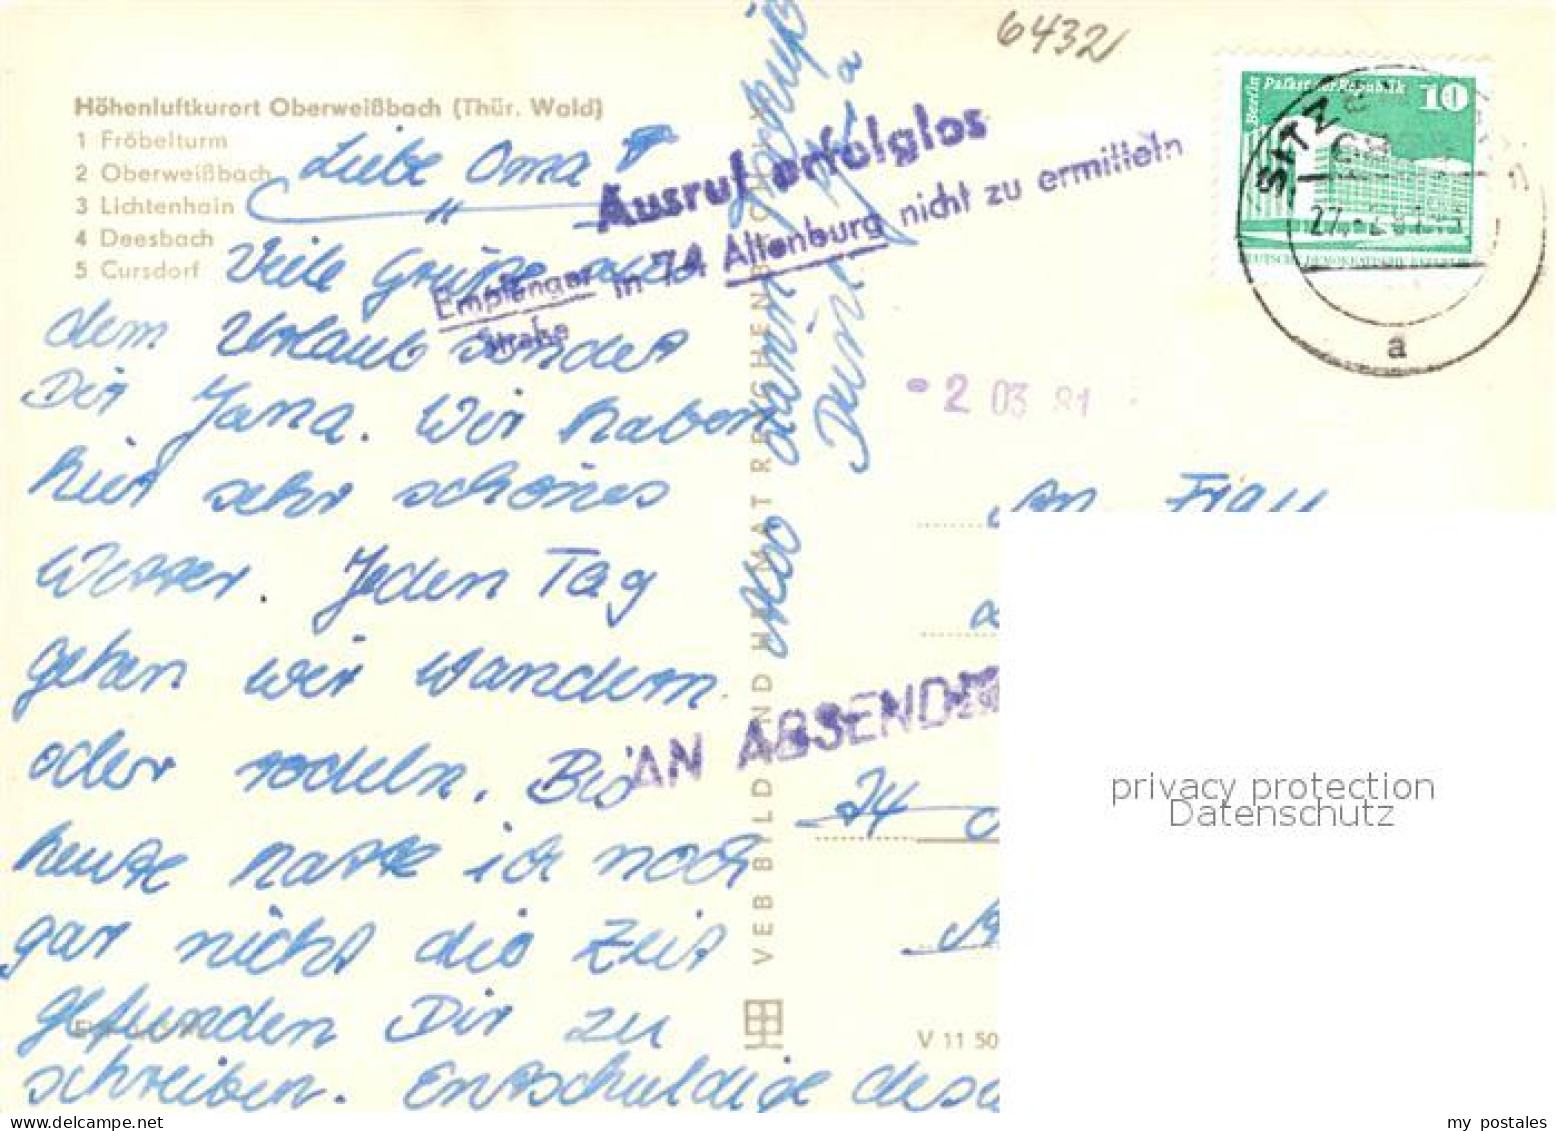 6432
Höhenluftkurort Oberweißbach (Thür. Wald)
1 Fröbelturm
2 Oberweißbach
3 Lichtenhain
4 Deesbach
5 Cursdorf
Liebe Oma
Viele Grüße aus
dem Urlaub sendet
Dir Jana. Wir haben
hier sehr schönes
Wetter. Jeden Tag
gehen wir wandern
oder rodeln. Bis
heute hatte ich noch
gar nicht die Zeit
gefunden Dir zu
schreiben. Entschuldige
Ausruf erfolglos
Empfänger in 74 Altenburg nicht zu ermitteln
Straße
Berlin Palast der Republik 10
DEUTSCHE DEMOKRATISCHE
a
- 2 03 81
An Frau
AN ABSENDER
74
VEB BILD UND HEIMAT REICHENBACH
V 11 50
privacy protection
Datenschutz
my postales